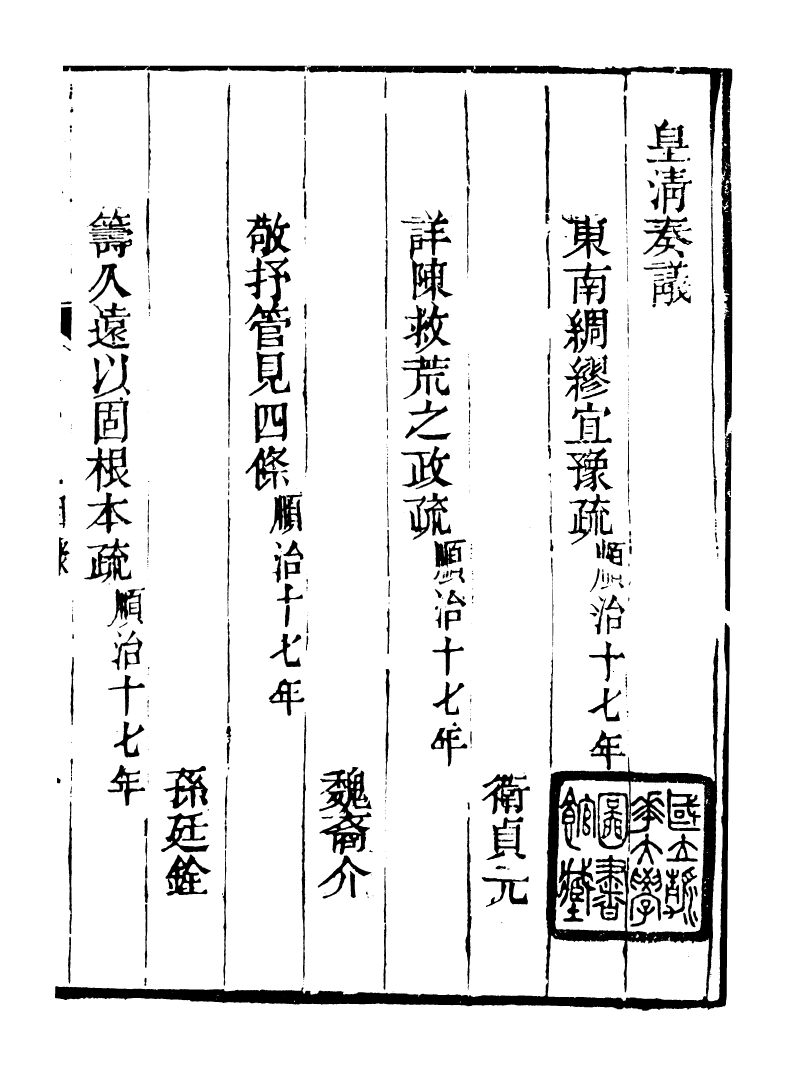 皇清奏議
東南綢繆宜豫疏順治十七年
衛貞元
詳陳救荒之政疏順治十七年
魏裔介
敬抒管見四條順治十七年
孫廷銓
籌久遠以固根本疏順治十七年
目錄
國立清
華大學
圖書
館藏